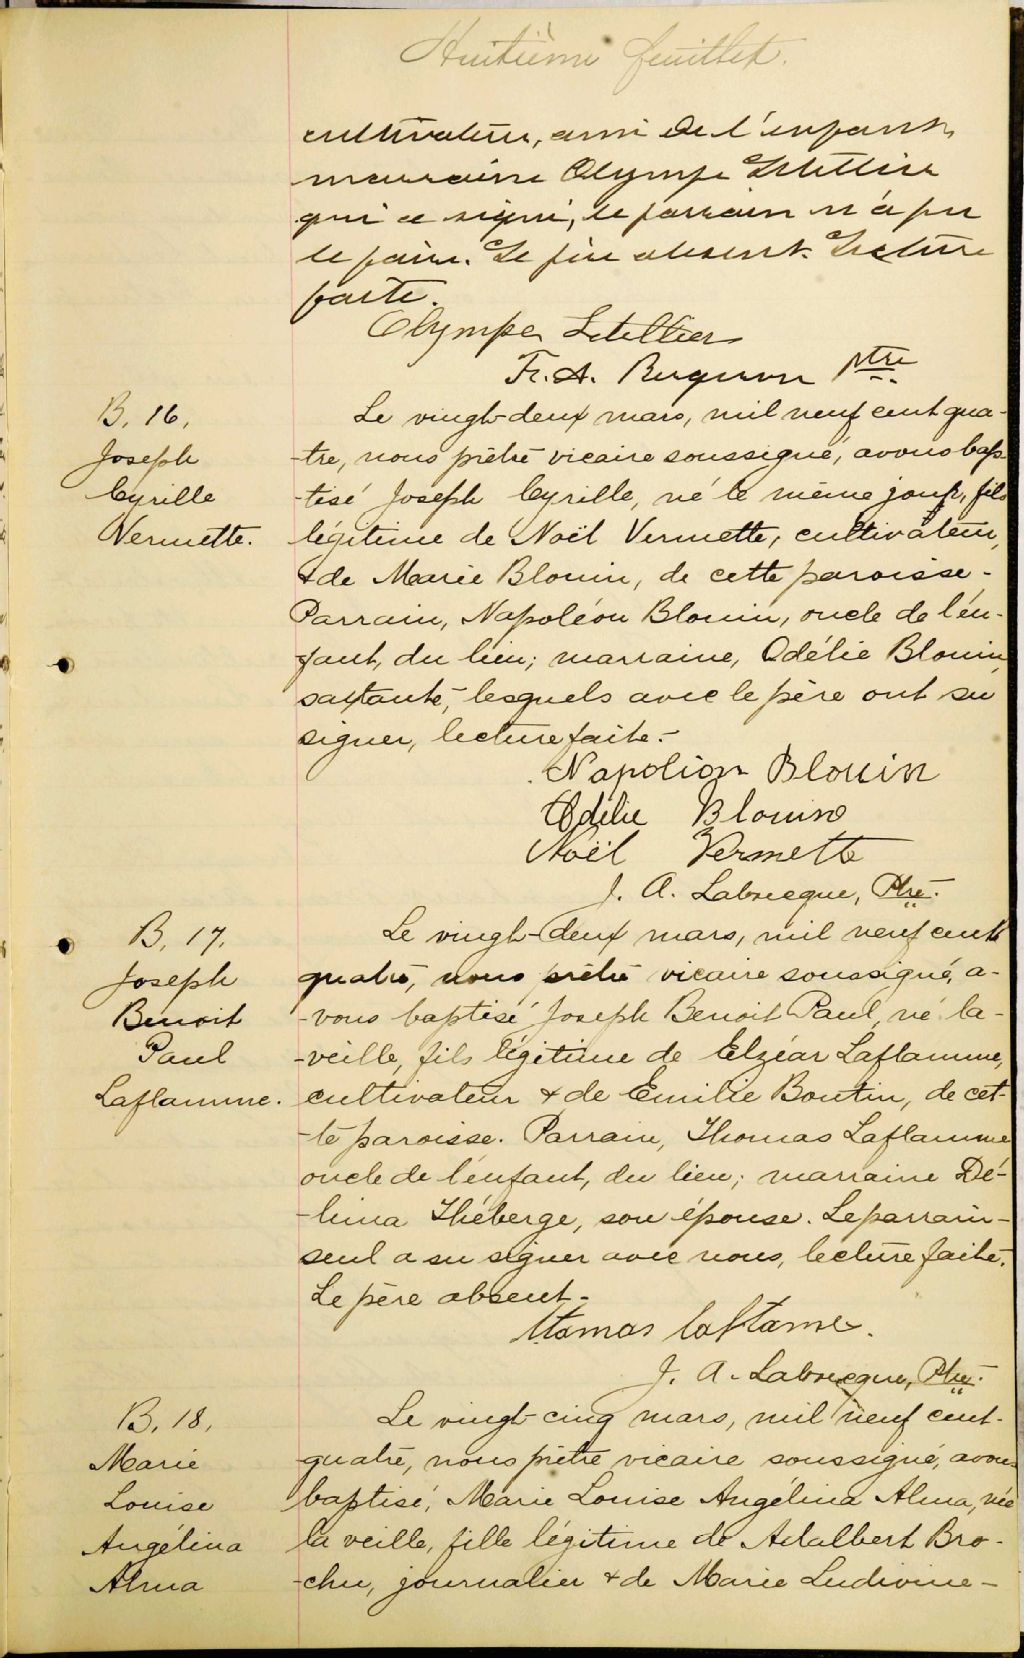 Huitième feuillet.
cultivateur, ami de l'enfant,
marraine Olympe Letellier
qui a signé, le parrain n'a pu
le faire. Le père absent. Lecture
faite.
Olympe Letellier
Fr. A. ptre
B. 16.
Joseph
Cyrille
Vermette.
Le vingt-deux mars, mil neuf cent qua-
-tre, nous prêtre vicaire soussigné, avons bap-
-tisé Joseph Cyrille, né le même jour, fils
légitime de Noël Vermette, cultivateur,
& de Marie Blouin, de cette paroisse-
Parrain, Napoléon Blouin, oncle de l'en-
-fant, du lieu; marraine, Odélie Blouin,
sa tante, lesquels avec le père ont su
signer, lecture faite.-
Napolion Blouin
Odélie Blouin
Noël Vermette
J. A. Labrecque, Ptre.
B. 17.
Joseph
Benoit
Paul
Laflamme.
Le vingt-deux mars, mil neuf cent
quatre, nous prêtre vicaire soussigné, a-
-vons baptisé Joseph Benoit Paul, né la-
-veille, fils légitime de Elzéar Laflamme,
cultivateur & de Emilie Boutin, de cet-
-te paroisse. Parrain, Thomas Laflamme
oncle de l'enfant, du lieu; marraine Dé-
-lima Théberge, son épouse. Le parrain-
seul a su signer avec nous, lecture faite.
Le père absent-
J. A. Labrecque, Ptre.
B. 18.
Marie
Louise
Angélina
Alma
Le vingt-cinq mars, mil neuf cent-
quatre, nous prêtre vicaire soussigné, avons
baptisé, Marie Louise Angélina Alma, née
la veille, fille légitime de Adalbert Bro-
-chu, journalier & de Marie Ludivine-